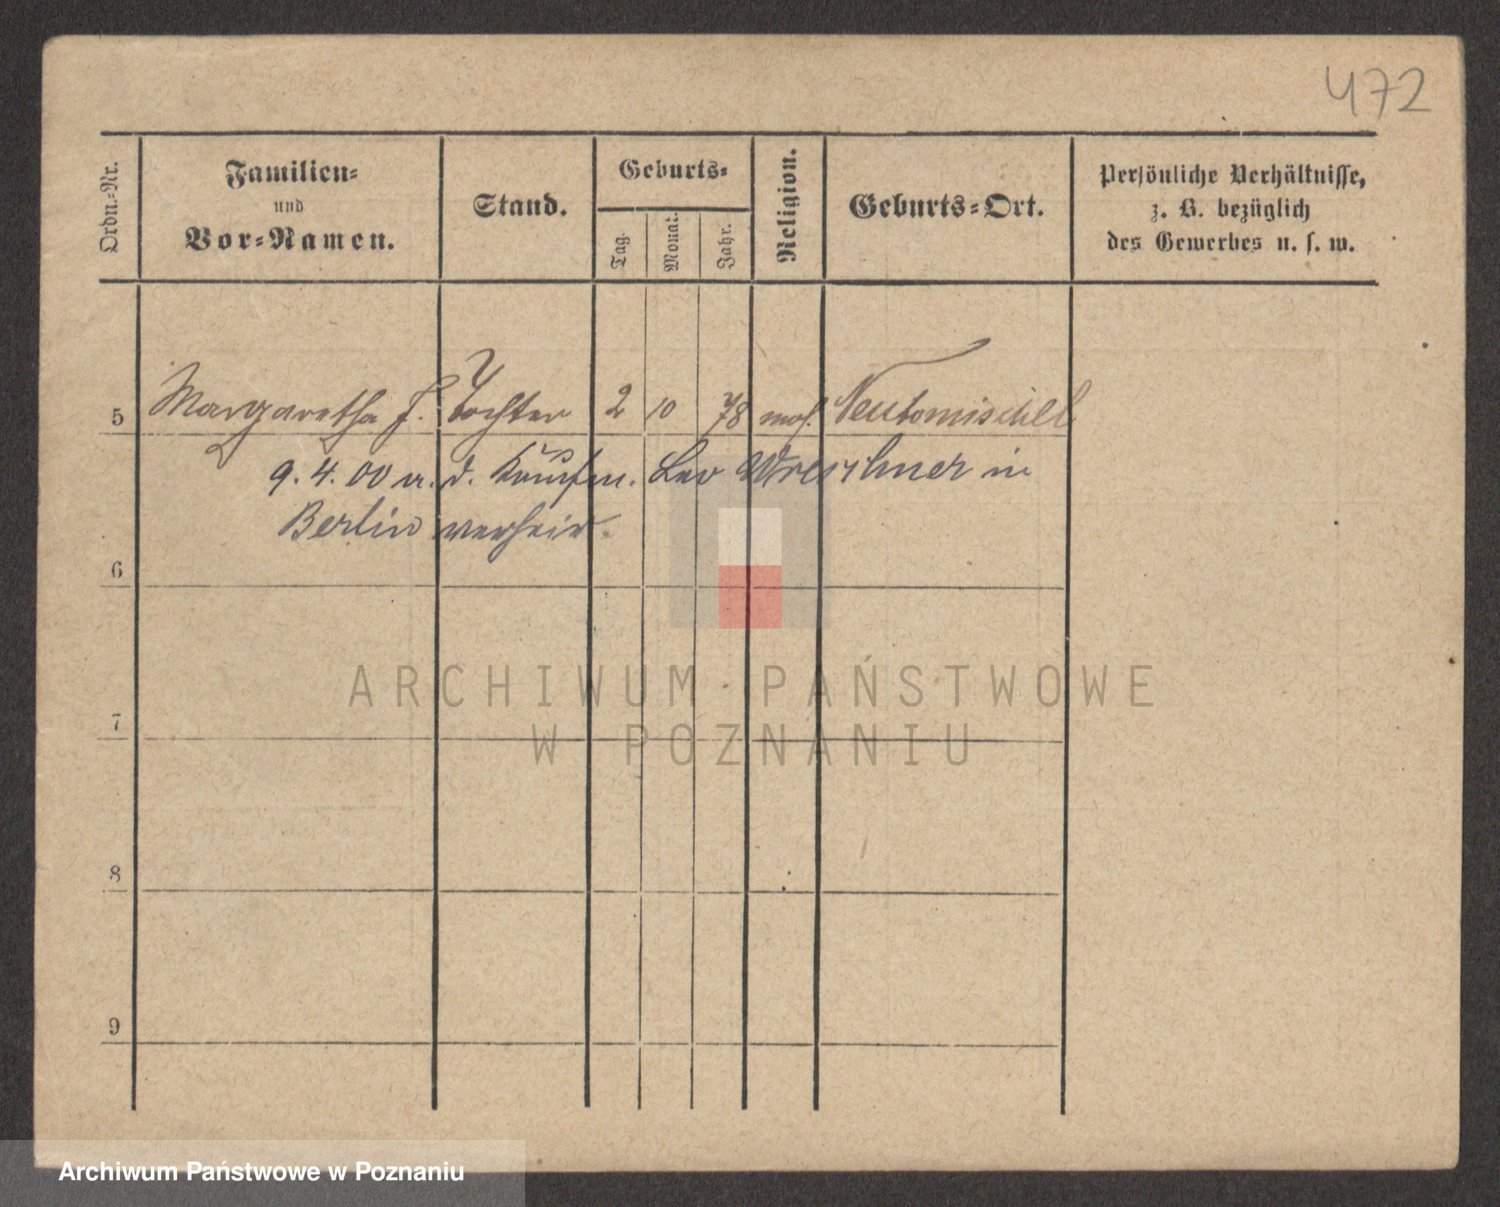 472
Ordn.-Nr.
Familien-
und
Vor-Namen.
Stand.
Geburts-
Tag.
Monat.
Jahr.
Religion.
Geburts-Ort.
Persönliche Verhältnisse,
z. B. bezüglich
des Gewerbes u. s. w.
5 Margaretha J. Tochter 2 10 78 mos. Neutomischel
9. 4. 00 a. d. Kaufm. Leo Wreschner in
Berlin verheir.
6
7
8
9
ARCHIWUM PAŃSTWOWE
W POZNANIU
Archiwum Państwowe w Poznaniu